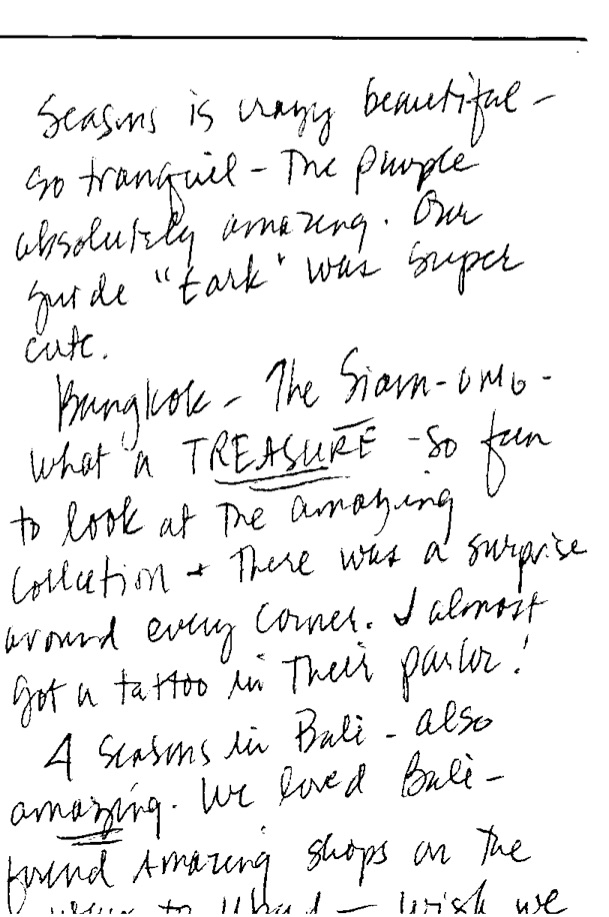 Seasons is crazy beautiful -
so tranquil - The people
absolutely amazing. Our
guide "tark" was super
cute.
Bangkok - The Siam - OMG -
what a TREASURE - so fun
to look at the amazing
collection + there was a surprise
around every corner. I almost
got a tattoo in their parlor!
4 Seasons in Bali - also
amazing. We loved Bali -
found amazing shops on the
to Ubud - wish we